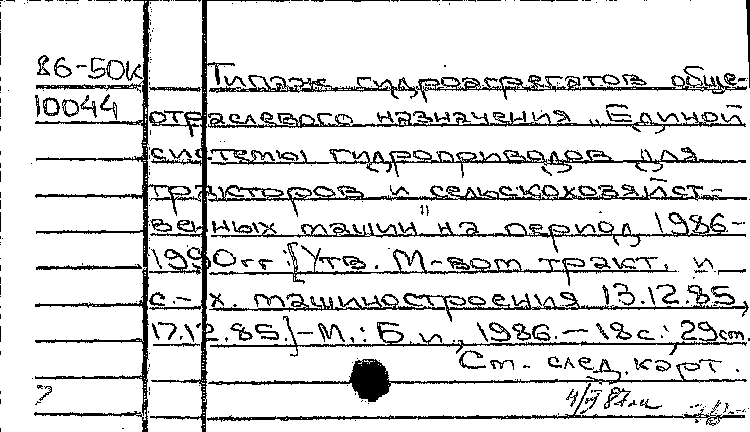 86-50К Типаж гидроагрегатов обще-
10044 отраслевого назначения „Единой
системы гидроприводов для
тракторов и сельскохозяйст-
венных машин" на период 1986-
1990гг.:[Утв. М-вом тракт. и
с.-х. машиностроения 13.12.85,
17.12.85.]-М.: Б.и., 1986.-18с.; 29см.
Ст. след. карт.